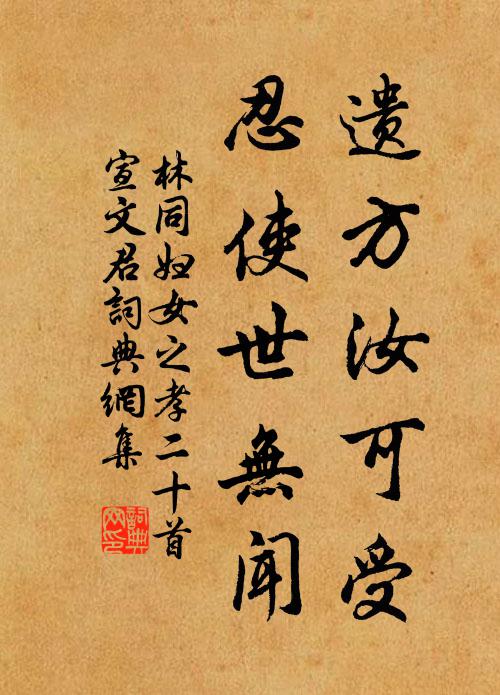 遺方汝可受
忍使世無聞
林同妇女之孝二十首
宣文君詞典網集
詞典
网